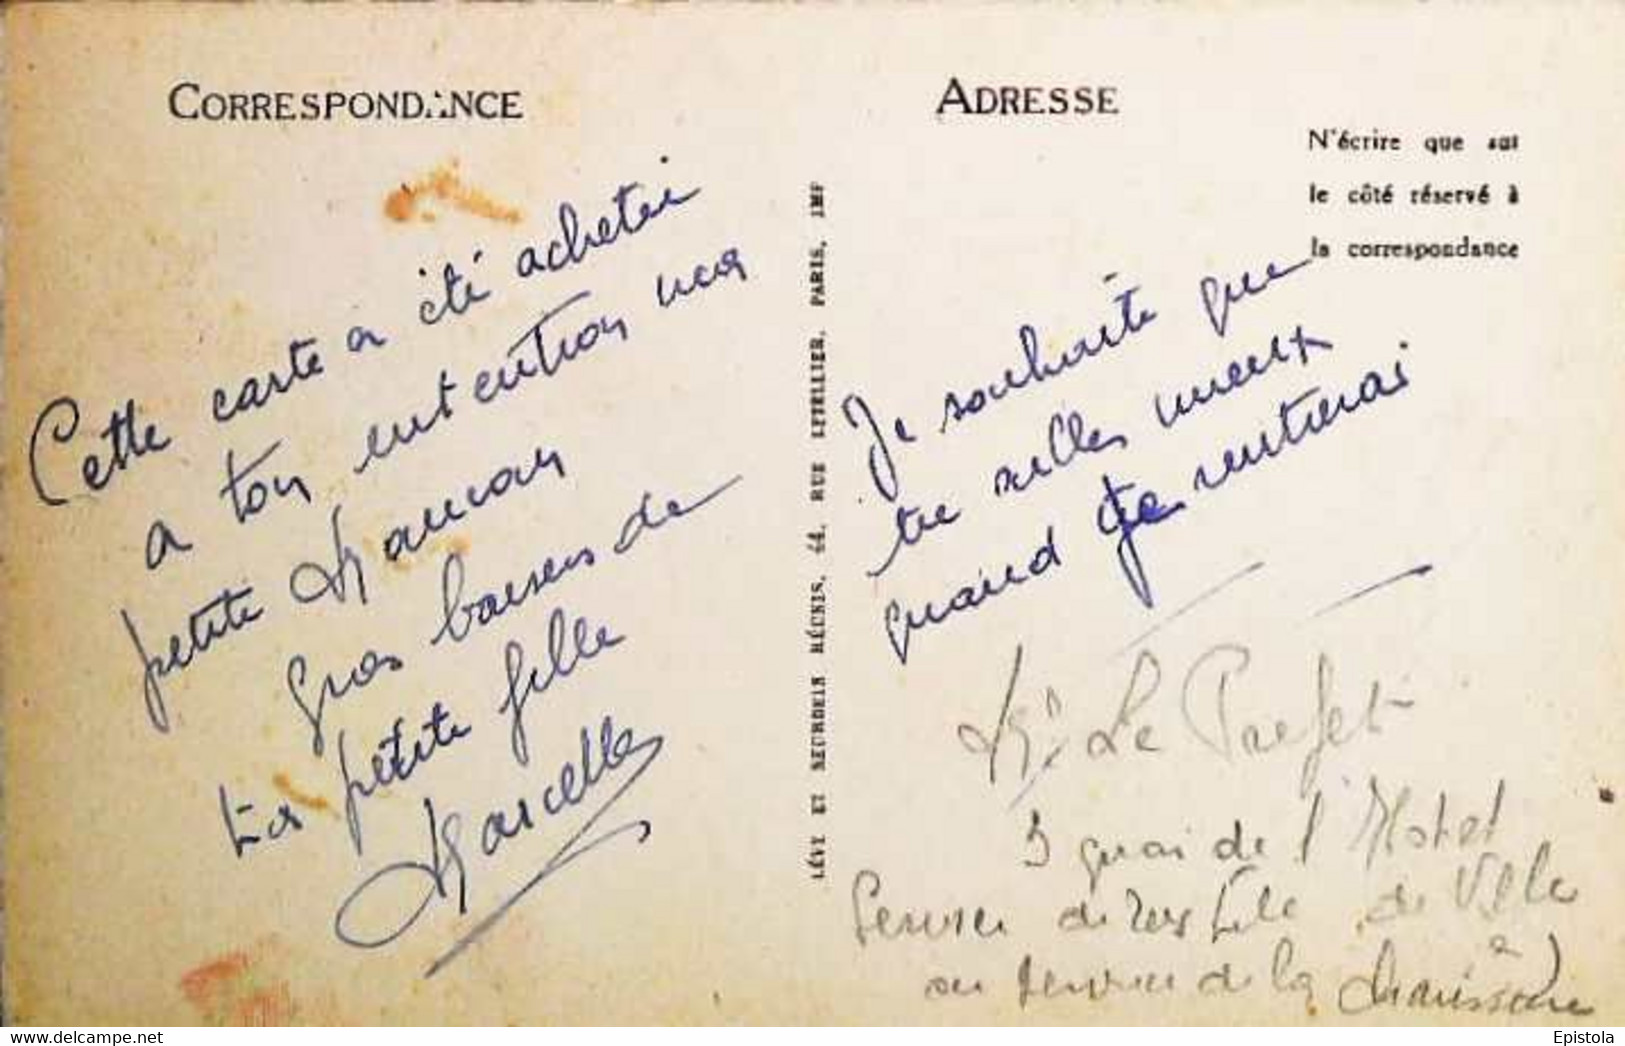 CORRESPONDANCE
Cette carte a été acheteé
a ton entention ma
petite Maman
Gros baisers de
ta petite fille
Marcelle
LÉVY ET NEURDEIN RÉUNIS, 44, RUE LETELLIER, PARIS, IMP
ADRESSE
N'écrire que sur
le côté réservé à
la correspondance
Je souhaite que
tu ailles mieux
quand je rentrerai
Mr Le Prefet
3 quai de l'Hotel
de Ville
ou service de la